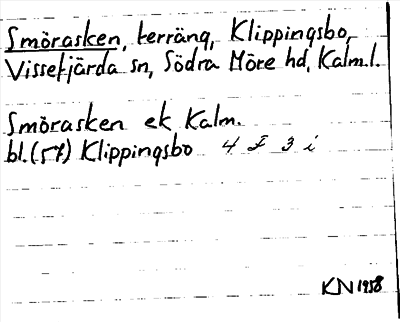 Smörasken, terräng, Klippingsbo,
Vissefjärda sn, Södra Möre hd, Kalm.l.
Smörasken ek Kalm.
bl.(57) Klippingsbo 4 I 3 i
KN 1958